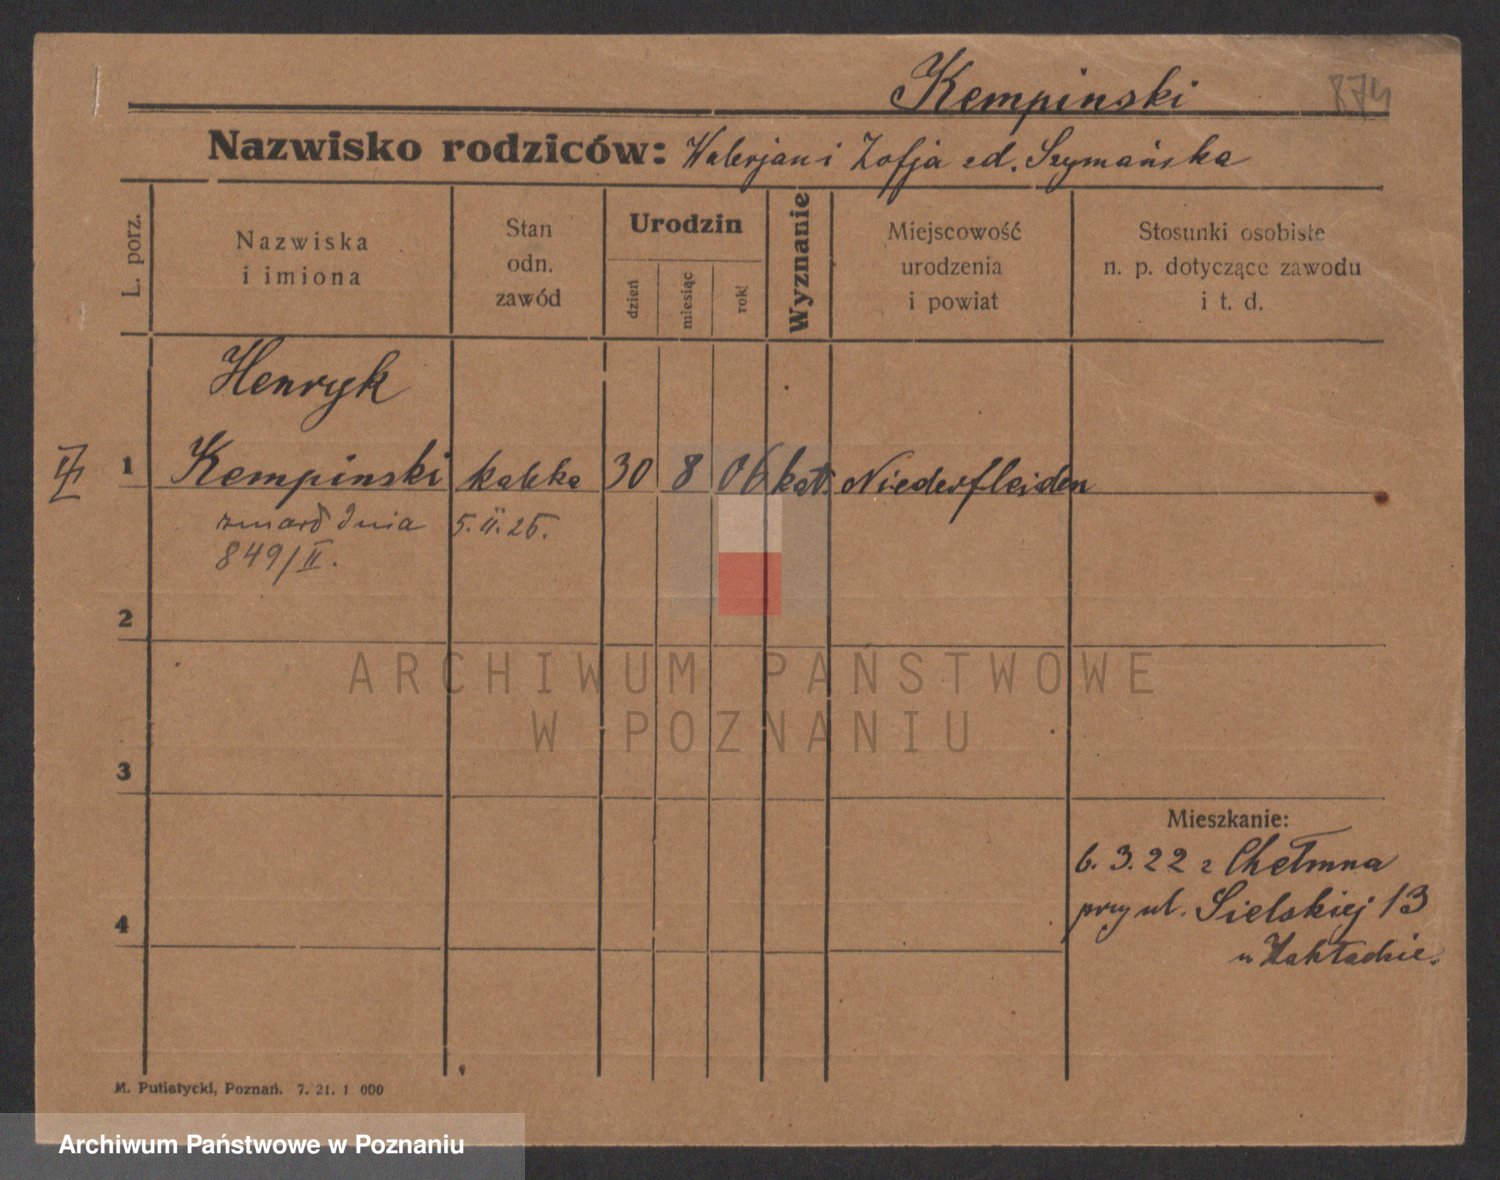 Kempinski
874
Nazwisko rodziców: Walerjan i Zofja zd. Szymańska
L. porz.
Nazwiska
i imiona
Stan
odn.
zawód
Urodzin
dzień
miesiąc
rok
Wyznanie
Miejscowość
urodzenia
i powiat
Stosunki osobiste
n. p. dotyczące zawodu
i t. d.
Henryk
1 Kempinski kaleka 30 8 06 kat. Niederfleiden
zmarł dnia 5.II.25.
849/II.
2
ARCHIWUM PAŃSTWOWE
W POZNANIU
3
Mieszkanie:
6. 3. 22 z Chełmna
przy ul. Sielskiej 13
4
w Zakładzie.
M. Putiatycki, Poznań. 7. 21. 1 000
Archiwum Państwowe w Poznaniu